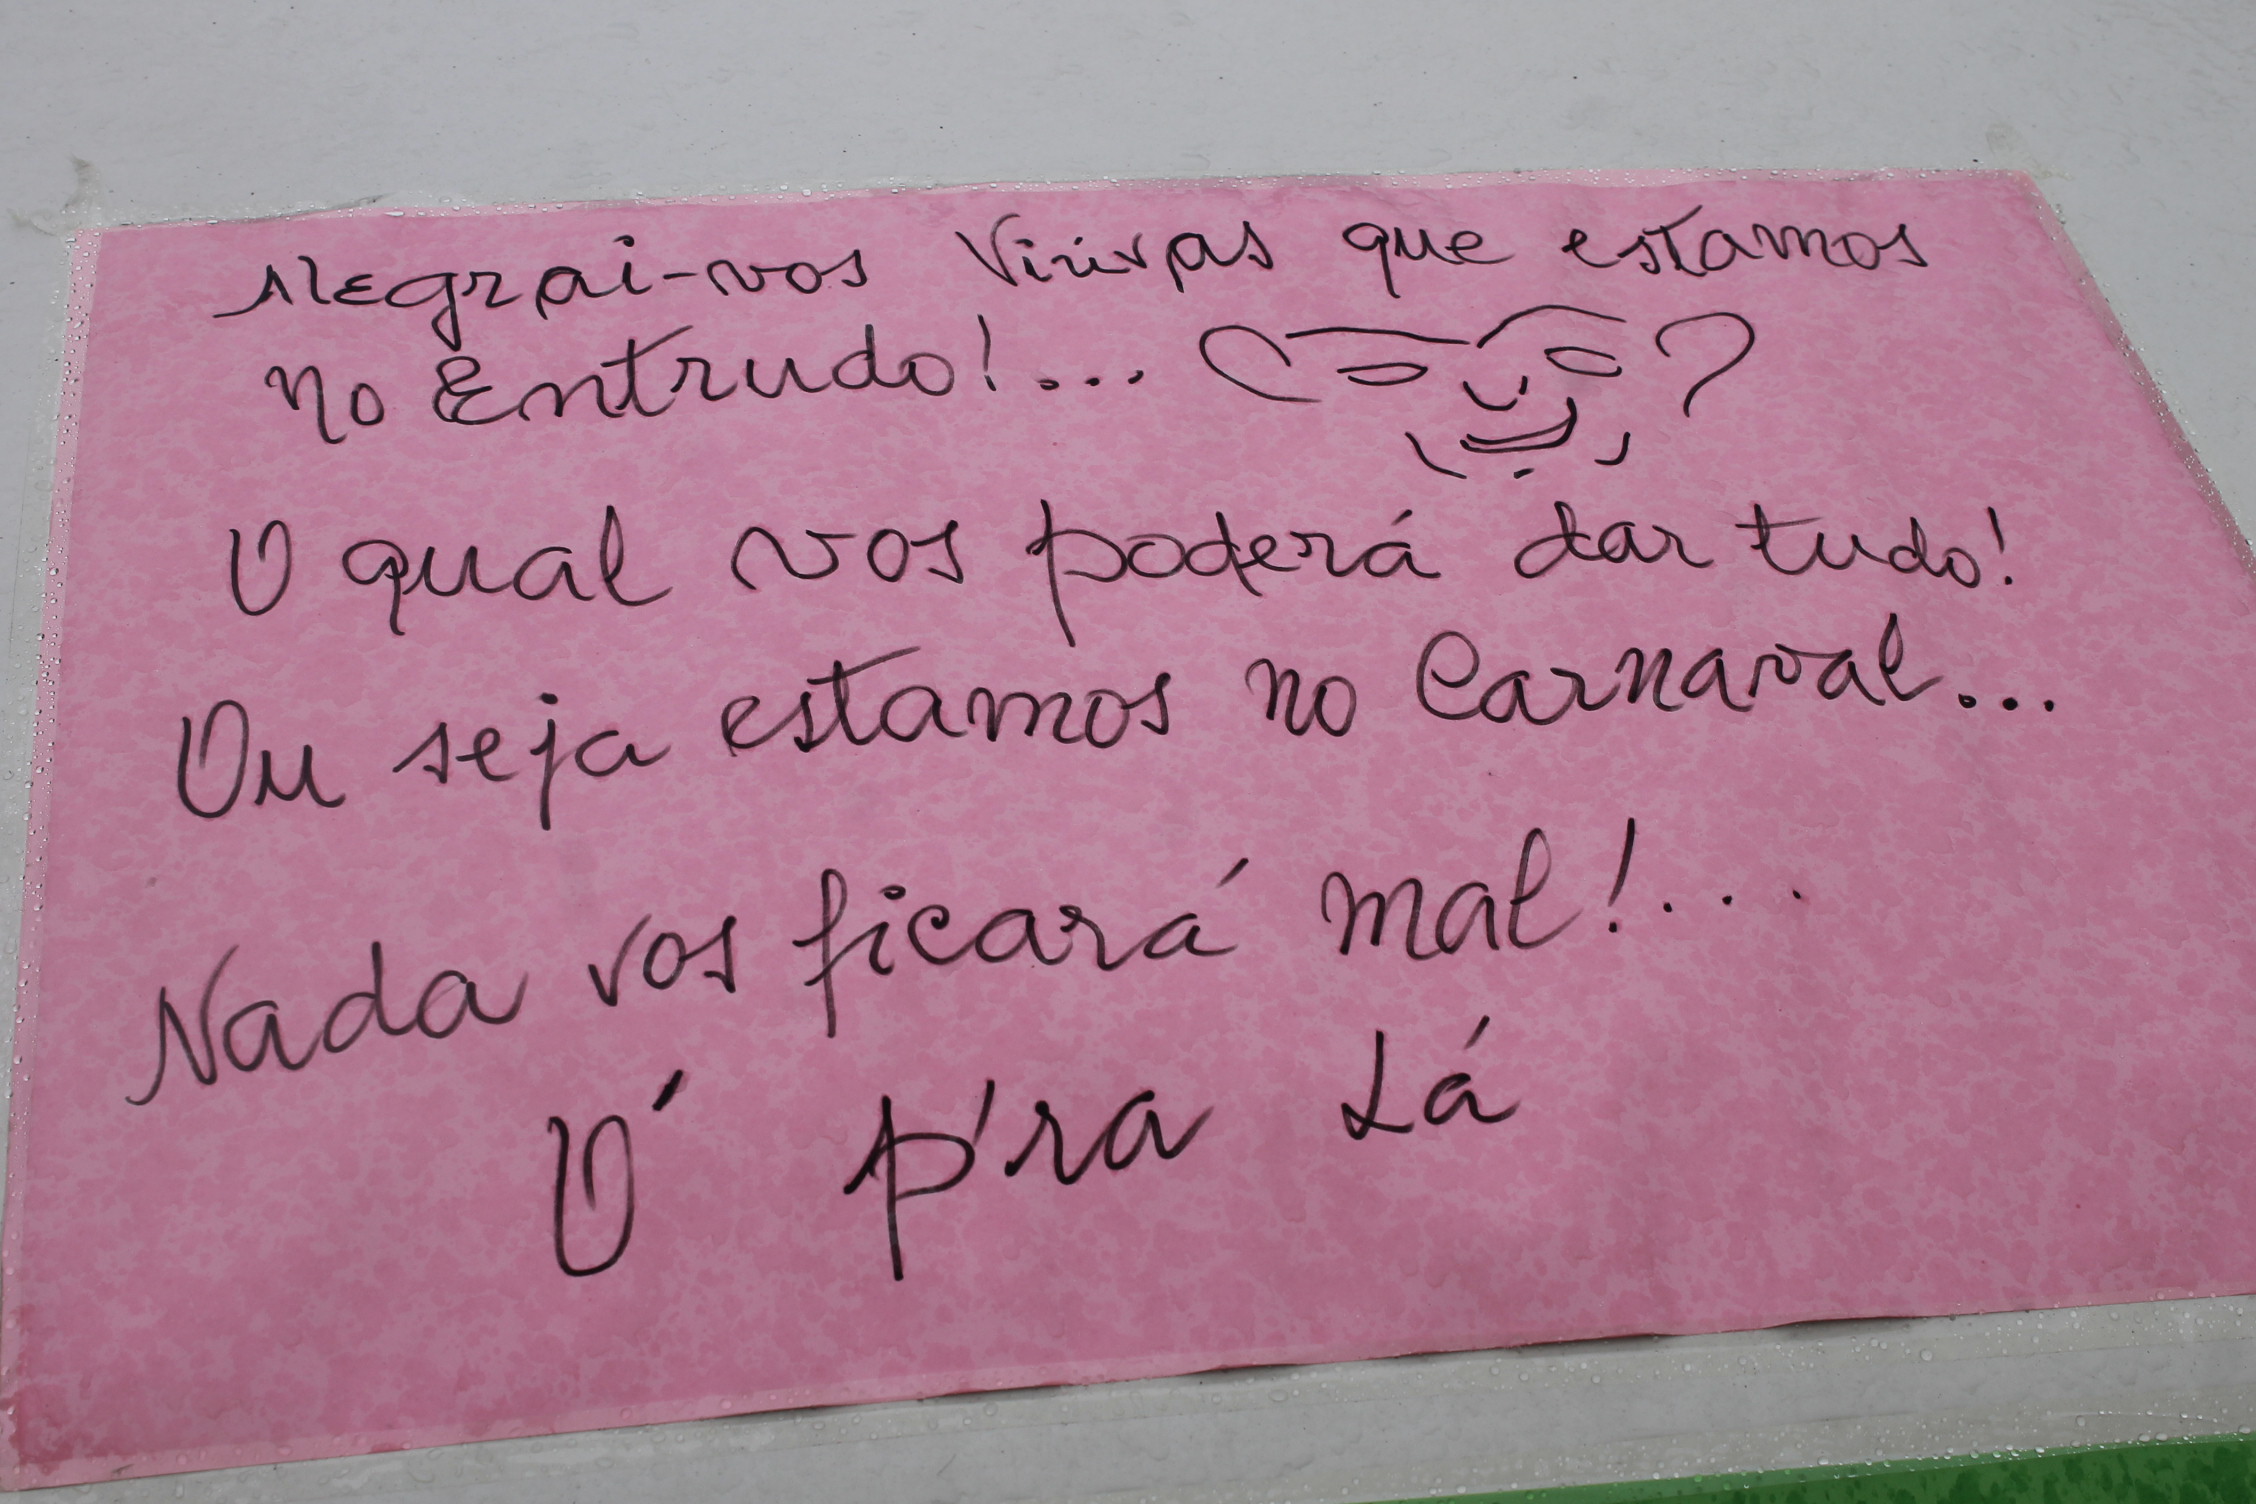 Alegrai-vos Viúvas que estamos
no Entrudo!...
O qual vos poderá dar tudo!
Ou seja estamos no Carnaval...
Nada vos ficará mal!...
Ó p'ra Lá